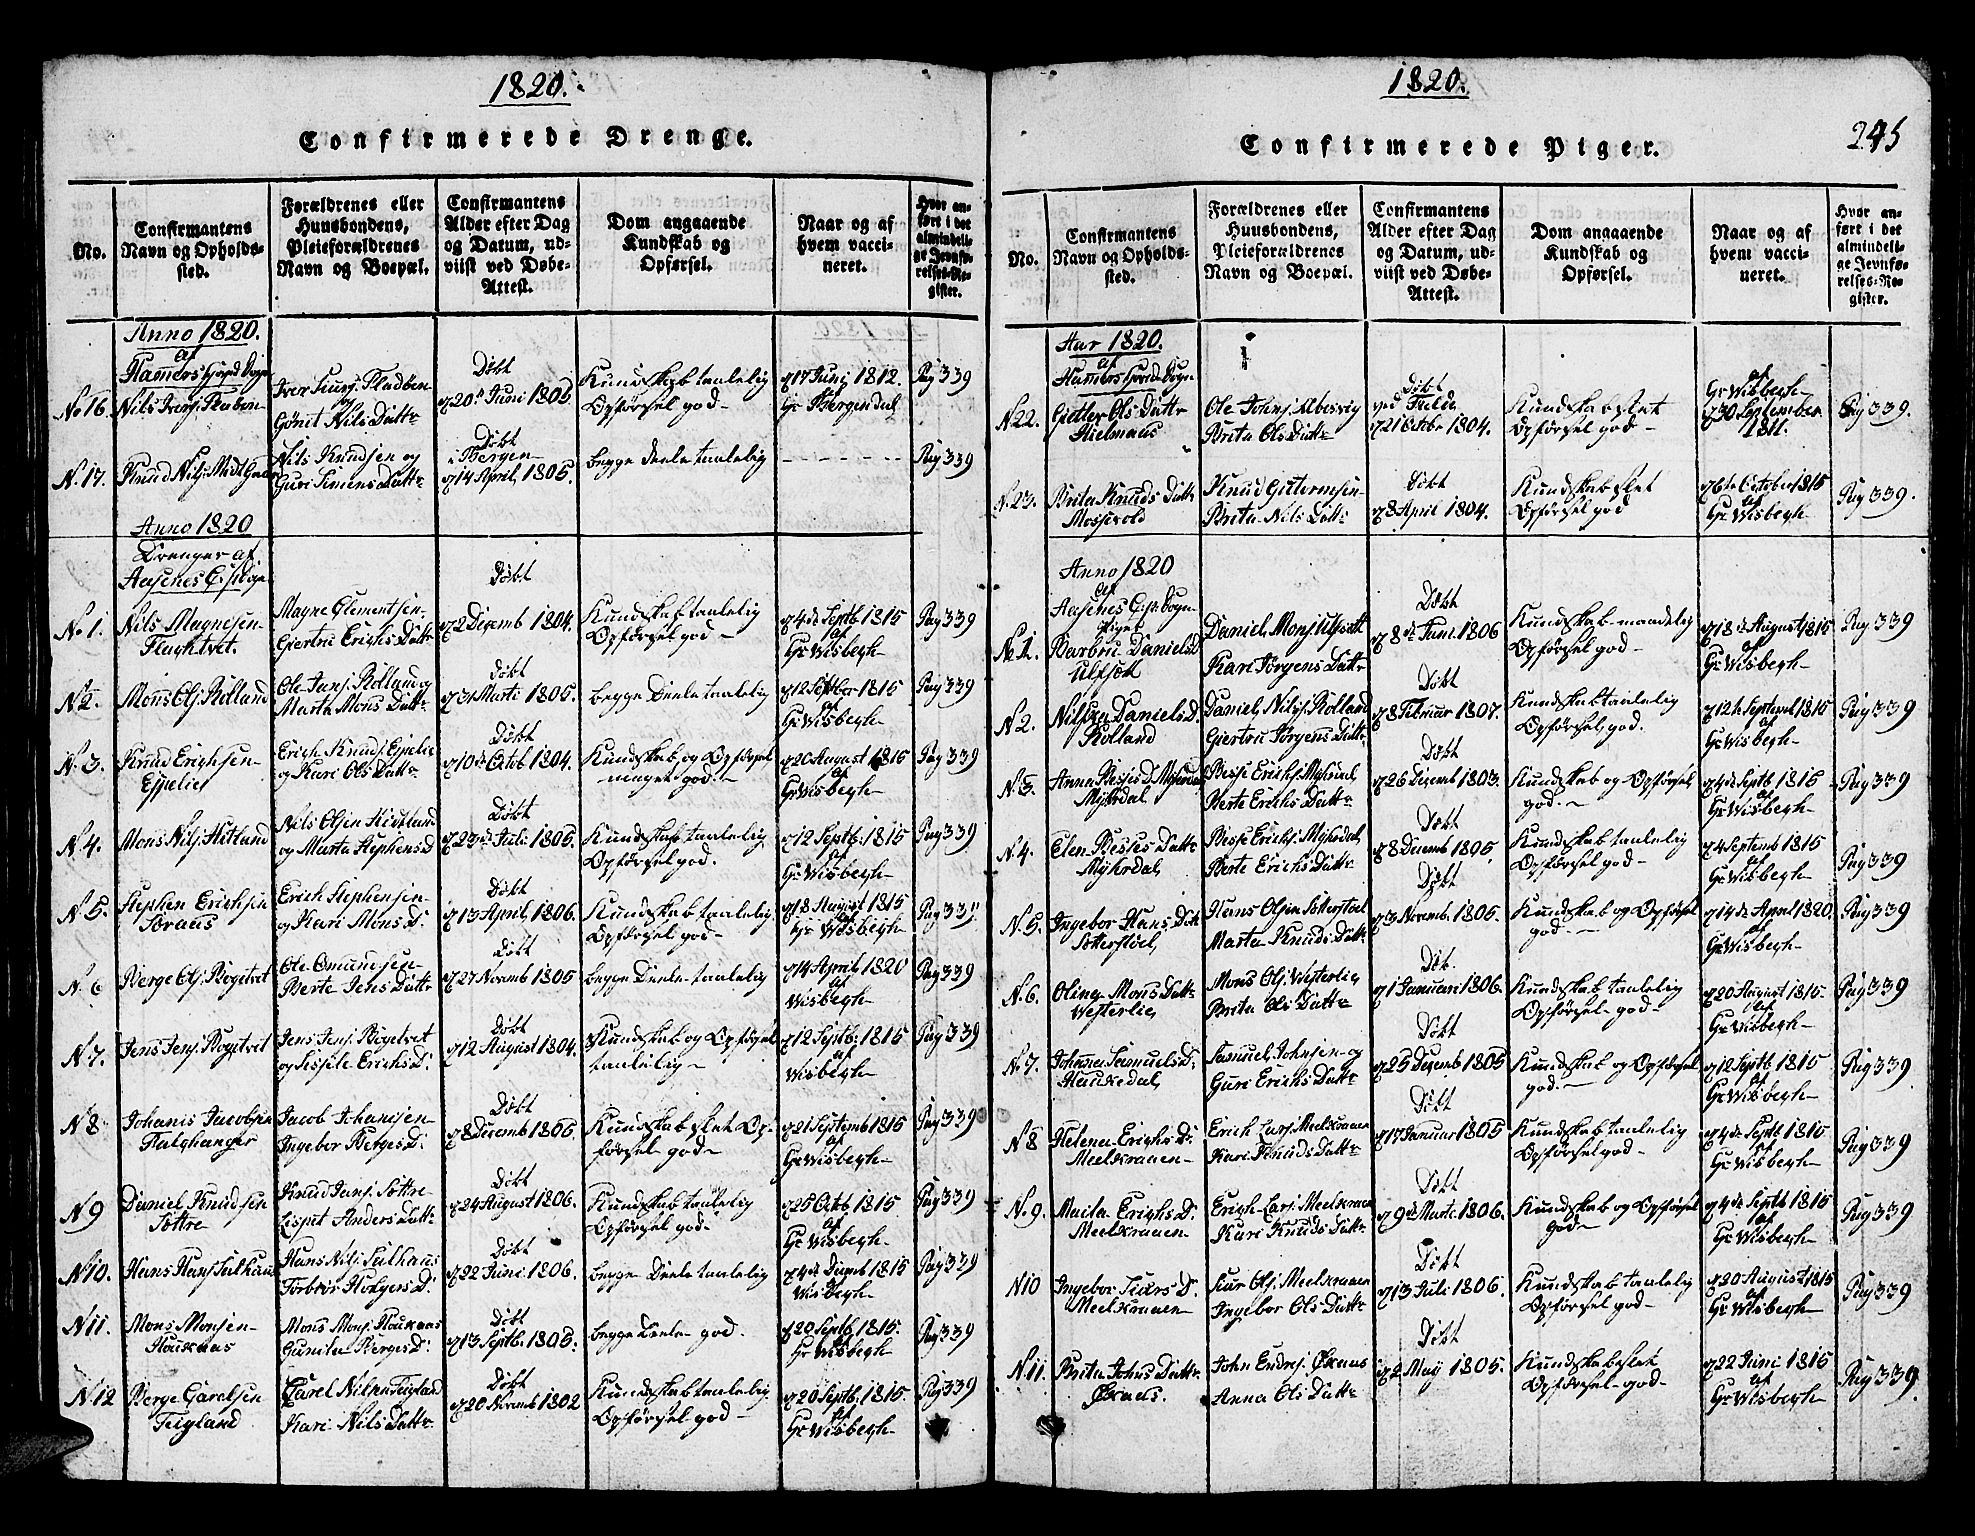 1820.
Confirmerede Drenge.
No.
Confirmantens
Navn og Opholds-
sted.
Forældrenes eller
Huusbondens,
Pleieforældrenes
Navn og Boepæl.
Confirmantens
Alder efter Dag
og Datum, ud-
viist ved Døbe-
Attest.
Dom angaaende
Kundskab og
Opførsel.
Naar og af
hvem vacci-
neret.
Hvor an-
ført i det
almindeli-
ge Jevnfø-
relses-Re-
gister.
Anno 1820.
af
Hamers Sogn
No 16.
Nils Ivers.
Iver
og
Gønit Nils Datt:
Døbt
20de Juni 1805
Kundskab taalelig
Opførsel god-
17 Junij 1812.
Pag 339
N. 17.
Knud Nils.
Nils Knudsen og
Guri Simens Datt:
Døbt
i Bergen
14 April, 1805.
begge Deele taalelig
Pag 339
Anno 1820
Drenger af
Aasenes
No 1.
Nils Magnesen-
Magne Clementsen-
Giertru Erichs Datt:
Døbt
2 Decemb 1804.
Kundskab taalelig
Opførsel god-
4de Septb 1815
af
Gr Wisbegh-
Pag 339
N 2.
Mons Ols. Rolland
Ole Jans. Rolland og
Marta Mons Datt:
Døbt
31 Marti 1805.
begge Deele taalelig
12 Septber 1815
af
Gr Wisbegh-
Pag 339
N. 3.
Knud Erichsen-
Espelie
Erich Knuds. Espelie
og Kari Ols Datt:
Døbt
10de Octob 1804.
Kundskab og Opførsel
meget god.-
20 August 1815
af
Gr Wisbegh-
Pag 339
N. 4.
Mons Nils. Hetland
Nils Olsen Hetland
og Marta Stephens D
Døbt
23de Juli 1805.
Kundskab taalelig
Opførsel god.
12 Septb. 1815
af
Gr Wisbegh-
Pag 339
N 5.
Stephen Erichsen
Erich Stephensen
og Kari Mons D.
Døbt
13 April, 1806.
Kundskab taalelig
Opførsel god-
18 August 1815
af
Gr Wisbegh
Pag 339
N. 6
Berge Ols. Bogetvet
Ole Omundsen-
Berte Jens Datt:
Døbt
27 Novemb 1805
begge Deele taalelig
14 April 1820
af
Wisbegh-
Pag 339
N 7.
Jens Jens. Bogetvet
Jens Jens. Bogetvet
og Sissele Erichs D.
Døbt
12 August 1804.
Kundskab og Opførsel
taalelig-
12 Septb: 1815
af
Wisbegh-
Pag 339
N 8
Johanis Jacobsen
Jacob Johansen-
Ingebor Berges D.
Døbt
8 Decemb 1805.
Kundskab slet Op-
førsel god-
21 Septemb 1815
af
Gr Wisbegh-
Pag 339
N 9
Daniel Knudsen
Sottre
Knud Jans. Sottre
Lispet Anders Datt:
Døbt
24 August 1806.
Kundskab taalelig
Opførsel god-
25 Octb. 1815.
af
Gr Wisbegh-
Pag 339
N10.
Hans Hans. Salhuus
Hans Nils. Salhuus
Torbrør Holgers D.
Døbt
22 Juni 1806.
begge Deele taalelig
4de Decmb 1815
af
Wisbegh-
Pag 339
N 11.
Mons Monsen-
Haukaas
Mons Mons. Haukaas
Gunilla Berges D.
Døbt
13 Septb. 1805.
begge Deele god.
20 Septb. 1815.
af
Gr Wisbegh
Pag 339
N 12
Berge Carelsen
Teigland
Carel Nilsen Teigland
Kari Nils Datt:
Døbt
20 Novemb 1802
Kundskab taalelig
Opførsel god-
20 Septb. 1815.
af
Gr Wisbegh-
Pag 339
1820.
Confirmerede Piger.
245
No.
Confirmantens
Navn og Opholds-
sted.
Forældrenes eller
Huusbondens,
Pleieforældrenes
Navn og Boepæl.
Confirmantens
Alder efter Dag
og Datum, ud-
viist ved Døbe-
Attest.
Dom angaaende
Kundskab og
Opførsel.
Naar og af
hvem vacci-
neret.
Hvor an-
ført i det
almindeli-
ge Jevnfø-
relses-Re-
gister.
Aar 1820.
af
Hamers Sogn
N 22.
Ols Datt:
Hielmaas
Ole Johns.
Brita Ols Datt:
Døbt
ved Fielde
21 Octobr 1804.
Kundskab slet
Opførsel god-
af
Gr Wisbegh-
30 September
1811.
Pag 339.
N. 23.
Brita Knuds Datt:
Mossevold
Knud Guttormsen-
Brita Nils Datt:
Døbt
8 April 1804.
Kundskab slet
Opførsel god
6te October 1815
af
Gr Wisbegh-
Pag 339.
Anno 1820
af
Aasenes
Piger
No 1.
Barbru Daniels D
Ulfsett
Daniel, Mons. Ulfsett
Kari Jørgens Datt:
Døbt
8de Juni 1806
Kundskab maadelig
Opførsel god-
18de August 1815
af
Gr Wisbegh-
Pag 339
N 2.
Daniels D.
Rolland
Daniel, Nils. Rolland
Giertru Jørgens Datt:
Døbt
8 Februar 1807.
Kundskab taalelig
Opførsel, god.
12te Septemb 1815
af
Gr Wisbegh-
Pag 339
N. 3.
Anna Besses D.
Myhrdal
Besse Erichs. Myhrdal
Berte Erichs Datt:
Døbt
26 Decemb 1803.
Kundskab og Opførsel
god.-
4de Septb. 1815
af
Gr Wisbegh-
Pag 339
N 4.
Elen Besses Datt:
Myhrdal,
Besse Erichs. Myhrdal
Berte Erichs Datt:
Døbt
8 Decemb 1805.
Kundskab taalelig
Opførsel god-
4 Septemb 1815
af
Gr Wisbegh-
Pag 339
N. 5.
Ingebor Hans Datt
Hans Olsen
Marta Knuds Datt:
Døbt
3 Novemb. 1805.
Kundskab og Opførsel
god.-
14de April 1820.
af
Gr Wisbegh-
Pag 339
N. 6.
Oline Mons Datt:
Westerlie,
Mons Ols. Westerlie,
Brita Ols Datt:
Døb.
1 Januari 1806.
Kundskab taalelig
Opførsel god-
20 August 1815.
af
Gr Wisbegh-
Pag 339
N. 7.
Johanna Samuels D.
Haukedal,
Samuel, Johnsen og
Guri Erichs Datt:
Døbt
25 Decemb 1805
Kundskab og Opførsel
god.-
12 Septb 1815
af
Gr Wisbegh-
Pag 339
N 8
Helena Erichs D.
Meelkraaen-
Erich Lars. Meelkraaen
Kari Knuds Datt:
Døbt
17 Januar 1805
Kundskab taalelig
Opførsel god-
4de Septb 1815
af
Gr Wisbegh-
Pag 339
N. 9.
Marta Erichs D.
Meelkraaen-
Erich Lars. Meelkraaen
Kari Knuds Datt:
Døbt
9de Marti 1806.
Kundskab og Opførsel
god-
4de Septb 1815
af
Gr Wisbegh-
Pag 339
N10
Ingebor D.
Meelkraaen-
Ols. Meelkraaen
Ingebor Ols Datt:
Døbt
13 Juli 1806.
Kundskab taalelig
Opførsel god-
20 August 1815
af
Gr Wisbegh-
Pag 339
N. 11.
Brita Johns Datt:
John Endres.
Anna Ols Datt:
Døbt
2 May 1805.
Kundskab slet
Opførsel god-
22 Juni 1815
af
Gr Wisbegh-
Pag 339